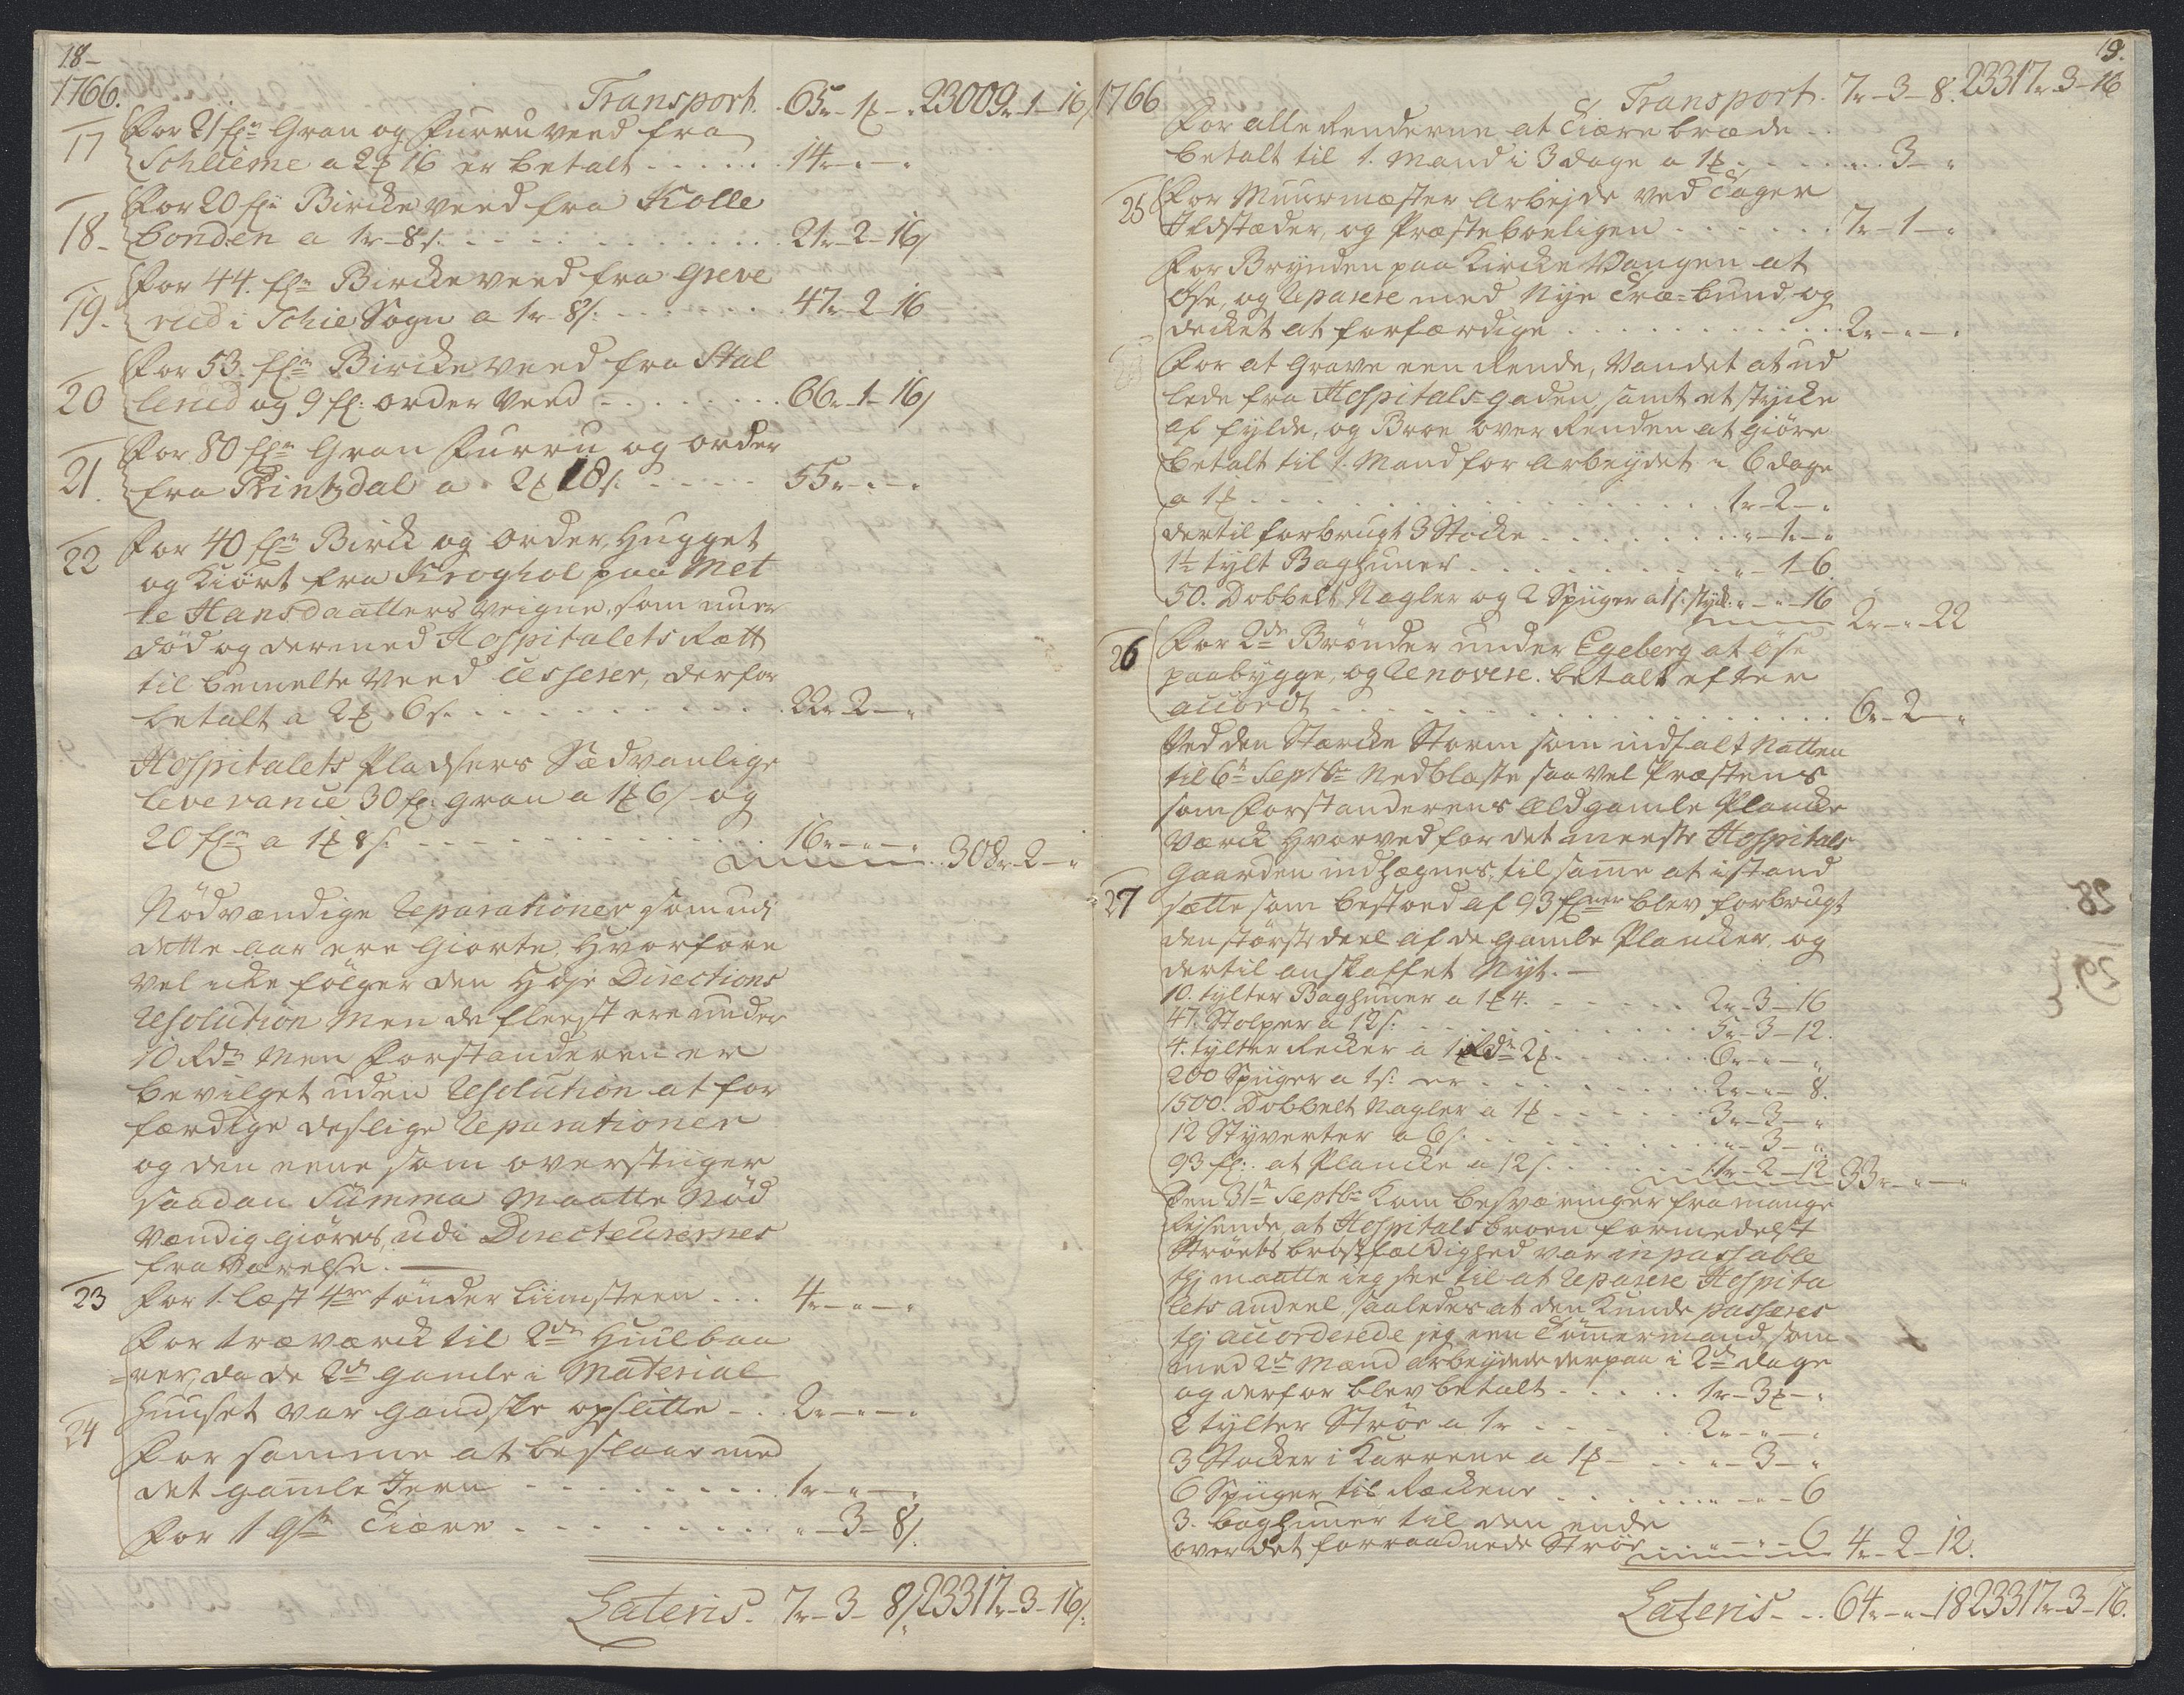 18-
1766.
Transport. 65r-1[-. 23009r-1-16/
17 For 21 fl Gran og Furru veed fra
Schlieme a 2[ 16 er betalt . . . . . 14r-"-"
For 20 fl Bircke veed fra Kolle
18- bonden a 1r-8s. . . . . . . 21r-2-16/
For 44. fl Bircke veed fra Greve
19. rud i Schie Sogn a 1r-8s: . . . . . 47r-2-16
For 53. fl Bircke veed fra Stal
20 lerud og 9 fl: order Veed . . . . . 66r-1-16/
For 80 fl Gran Furru og order
21. fra Printzdal a 2[ 18s . . . . . 55r-"-"
22 For 40 fl Birck og order, Hugget
og Kiört fra Kroghol paa Met
te Hansdaatters Veigne, som nu er
död og dermed Hospitalets Rætt
til bemelte Veed cesserer, derfor
betalt a 2[ 6s. . . . . . 22r-2-"
Hospitalets Pladsers Sædvanlige
leverance 30 fl: gran a 1[ 6/ og
20 fl a 1[ 8s. . . . . . 16r-"-" 308r-2-"
Nödvændige Reparationer som udi
dette aar ere giorte, Hvorfore
vel icke fölger den Höje Directions
Resolution Men de fleest ere under
10 Rdr Men Forstanderen er
bevilget uden Resolution at for
færdige deslige Reparationer
og den eene som overstiiger
saadan Summa Maatte Nöd
vændig giöres, udi Directeurernes
fraværelse. —
23 For 1. læst 4 tönder Liimsteen . . . 4r-"-"
For træværck til 2de Hiulbaa
rer, da de 2de gamle i Material
Huuset var gandske opslitte . . 2r-"-"
24
For samme at beslaae med
det gamle Jern . . . . . . 1r-"-"
For 1 Tiære . . . . . . "-3-8/.
Lateris. 7r-3-8/ 23317r-3-16/:
19.
1766
Transport. 7r-3-8. 23317r-3-16
For alle Renderne at Tiære bræde
betalt til 1. Mand i 3 dage a 1[. . . . . "-3-"
25 For Muurmæster Arbejde ved Tager
Ildstæder, og Præsteboeligen . . . . . . 7r-1-"
For Brynden paa Kircke Vangen at
öse, og Reparere med Nye Træ=bund, og
decket at forfærdige . . . . . . 2r-"-"
For at Grave een Rende, Vandet at ud
lede fra Hospitals-gaden, samt et stycke
at fylde, og Broe over Renden at giöre
betalt til 1. Mand for arbeydet i 6 dage
a 1[ . . . . . . 1r-2-"
dertil forbrugt 3 Stocke . . . . . . "-1-"
1½ tylt Baghuner . . . . . . "-1-6
50. Dobbelt Nagler og 2 Spiiger a 1s: styck: "-"-16 2r-"-22
26 For 2de Brönder under Egeberg at öse
paabygge, og Renovere. betalt efter
accordt . . . . . . 6r-2-"
Ved den Stærcke Storm som indfalt Natten
til 6te Septbr Nedblæste saavel Præstens
som Forstanderens Ældgamle Plancke
Værck hvorved for det meeste Hospitals
Gaarden indhægnes, til samme at istand
27 sætte som bestoed af 93 blev forbrugt
den störste deel af de gamle Plancker, og
dertil anskaffet Nyt. —
10. tylter Baghuner a 1[ 4. . . . . . 2r-3-16
47. Stolper a 12s: . . . . . 5r-3-12.
4. tylter Recker a 1 Rdr 2[. . . . . . 6r-"-"
200 Spiiger a 1s: er . . . . . 2r-"-8.
1500. Dobbelt Nagler a 1[ . . . . . 3r-3-"
12 Styverter a 6s: . . . . . "-3-"
93 fl: at Plancke a 12s. . . . . . 11r-2-12 33r-"-"
Den 31te Septbr Kom besværinger fra mange
Rejsende, at Hospitalsbroen formedelst
Ströets bröstfældighed var inpassable
thj maatte ieg see til at Reparere Hospita
lets andeel, saaledes at den Kunde passeres
thj accorderede jeg een Tömmermand, som
med 2de Mænd arbeydede derpaa i 2de dage
og derfor blev betalt . . . . . 1r-3[-"
2 tylter Ströe a 1r . . . . . 2r-"-"
3 Stocker i Karrene a 1[ . . . . "-3-"
6 Spiiger til Reckene . . . . . "-"-6
3. baghuner til den ende
over det forraadnede Ströe "-"-6 4r-2-12.
Lateris. . . 64r-"-18 23317r-3-16.